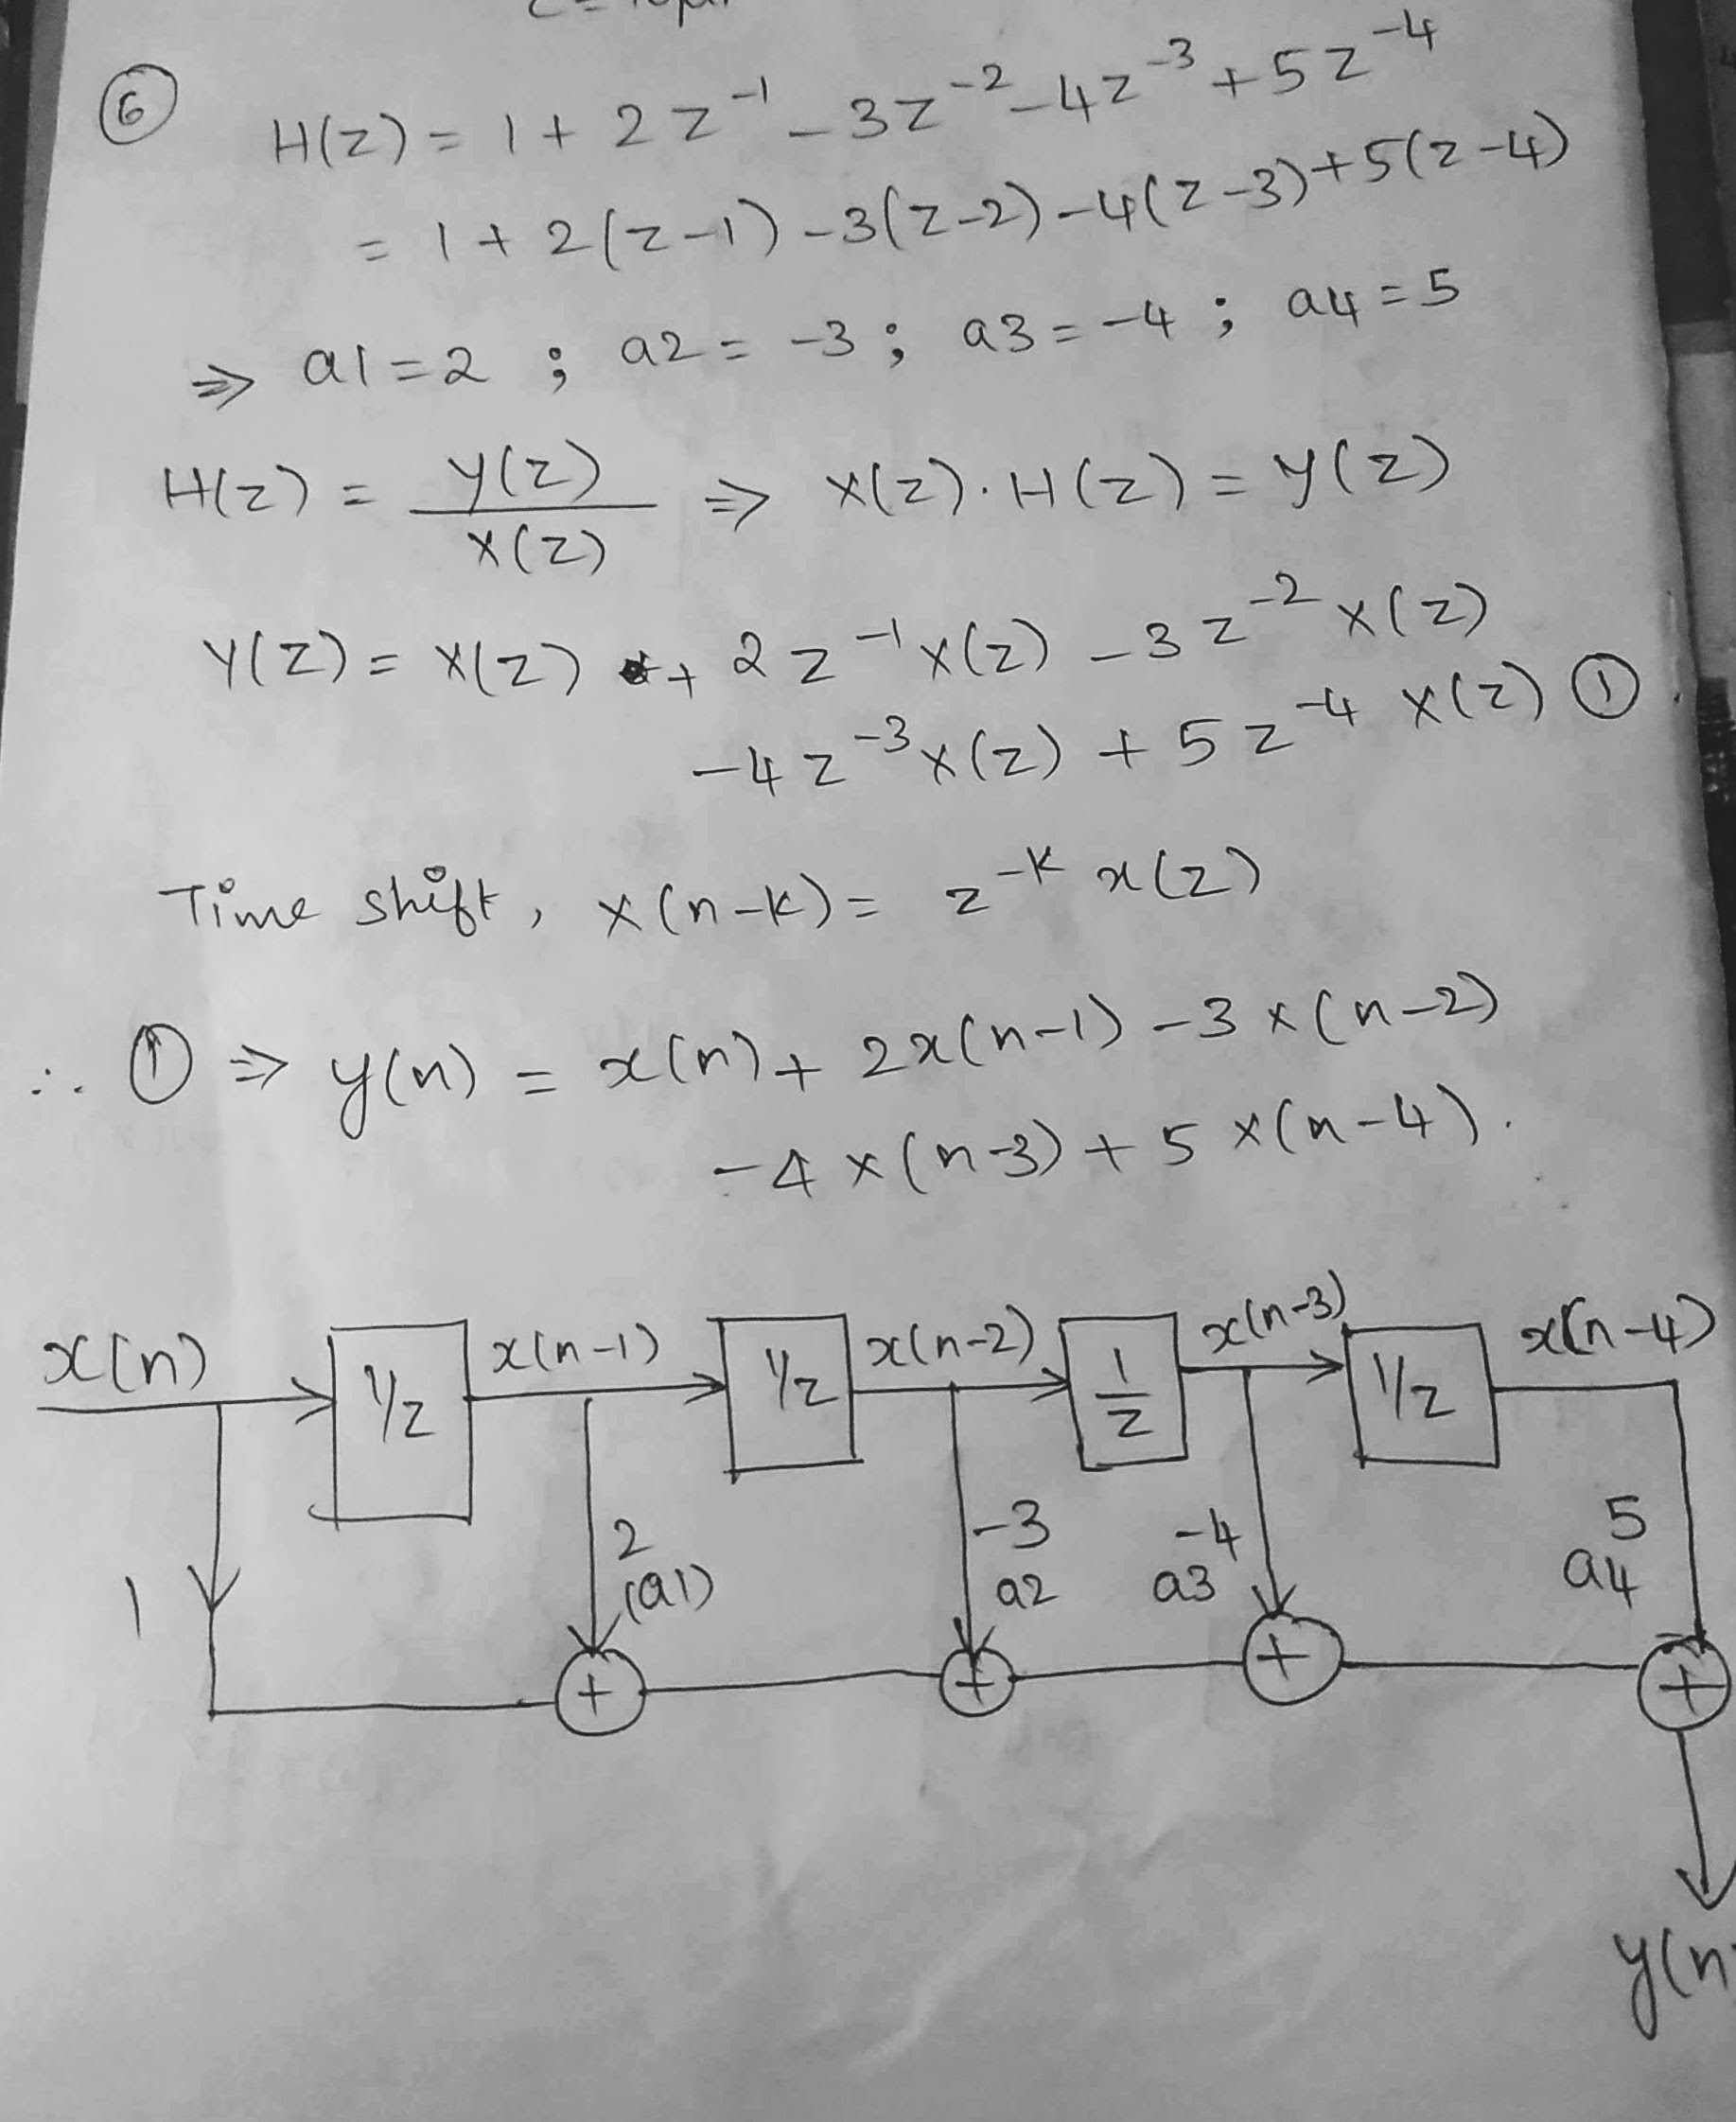 ⑥ H(z) = 1 + 2z⁻¹ - 3z⁻² - 4z⁻³ + 5z⁻⁴
= 1 + 2(z-1) - 3(z-2) - 4(z-3) + 5(z-4)
⇒ a1 = 2 ; a2 = -3 ; a3 = -4 ; a4 = 5
H(z) = y(z) / x(z) ⇒ x(z) . H(z) = y(z)
Y(z) = x(z) + 2z⁻¹x(z) - 3z⁻² x(z)
- 4z⁻³x(z) + 5z⁻⁴ x(z) ① .
Time shift, x(n-k) = z⁻ᴷ x(z)
∴ ① ⇒ y(n) = x(n) + 2x(n-1) - 3x(n-2)
- 4x(n-3) + 5x(n-4).
x(n) 1/z x(n-1) 1/z x(n-2) 1/z x(n-3) 1/z x(n-4)
1 2 -3 -4 5
(a1) a2 a3 a4
+ + + +
y(n